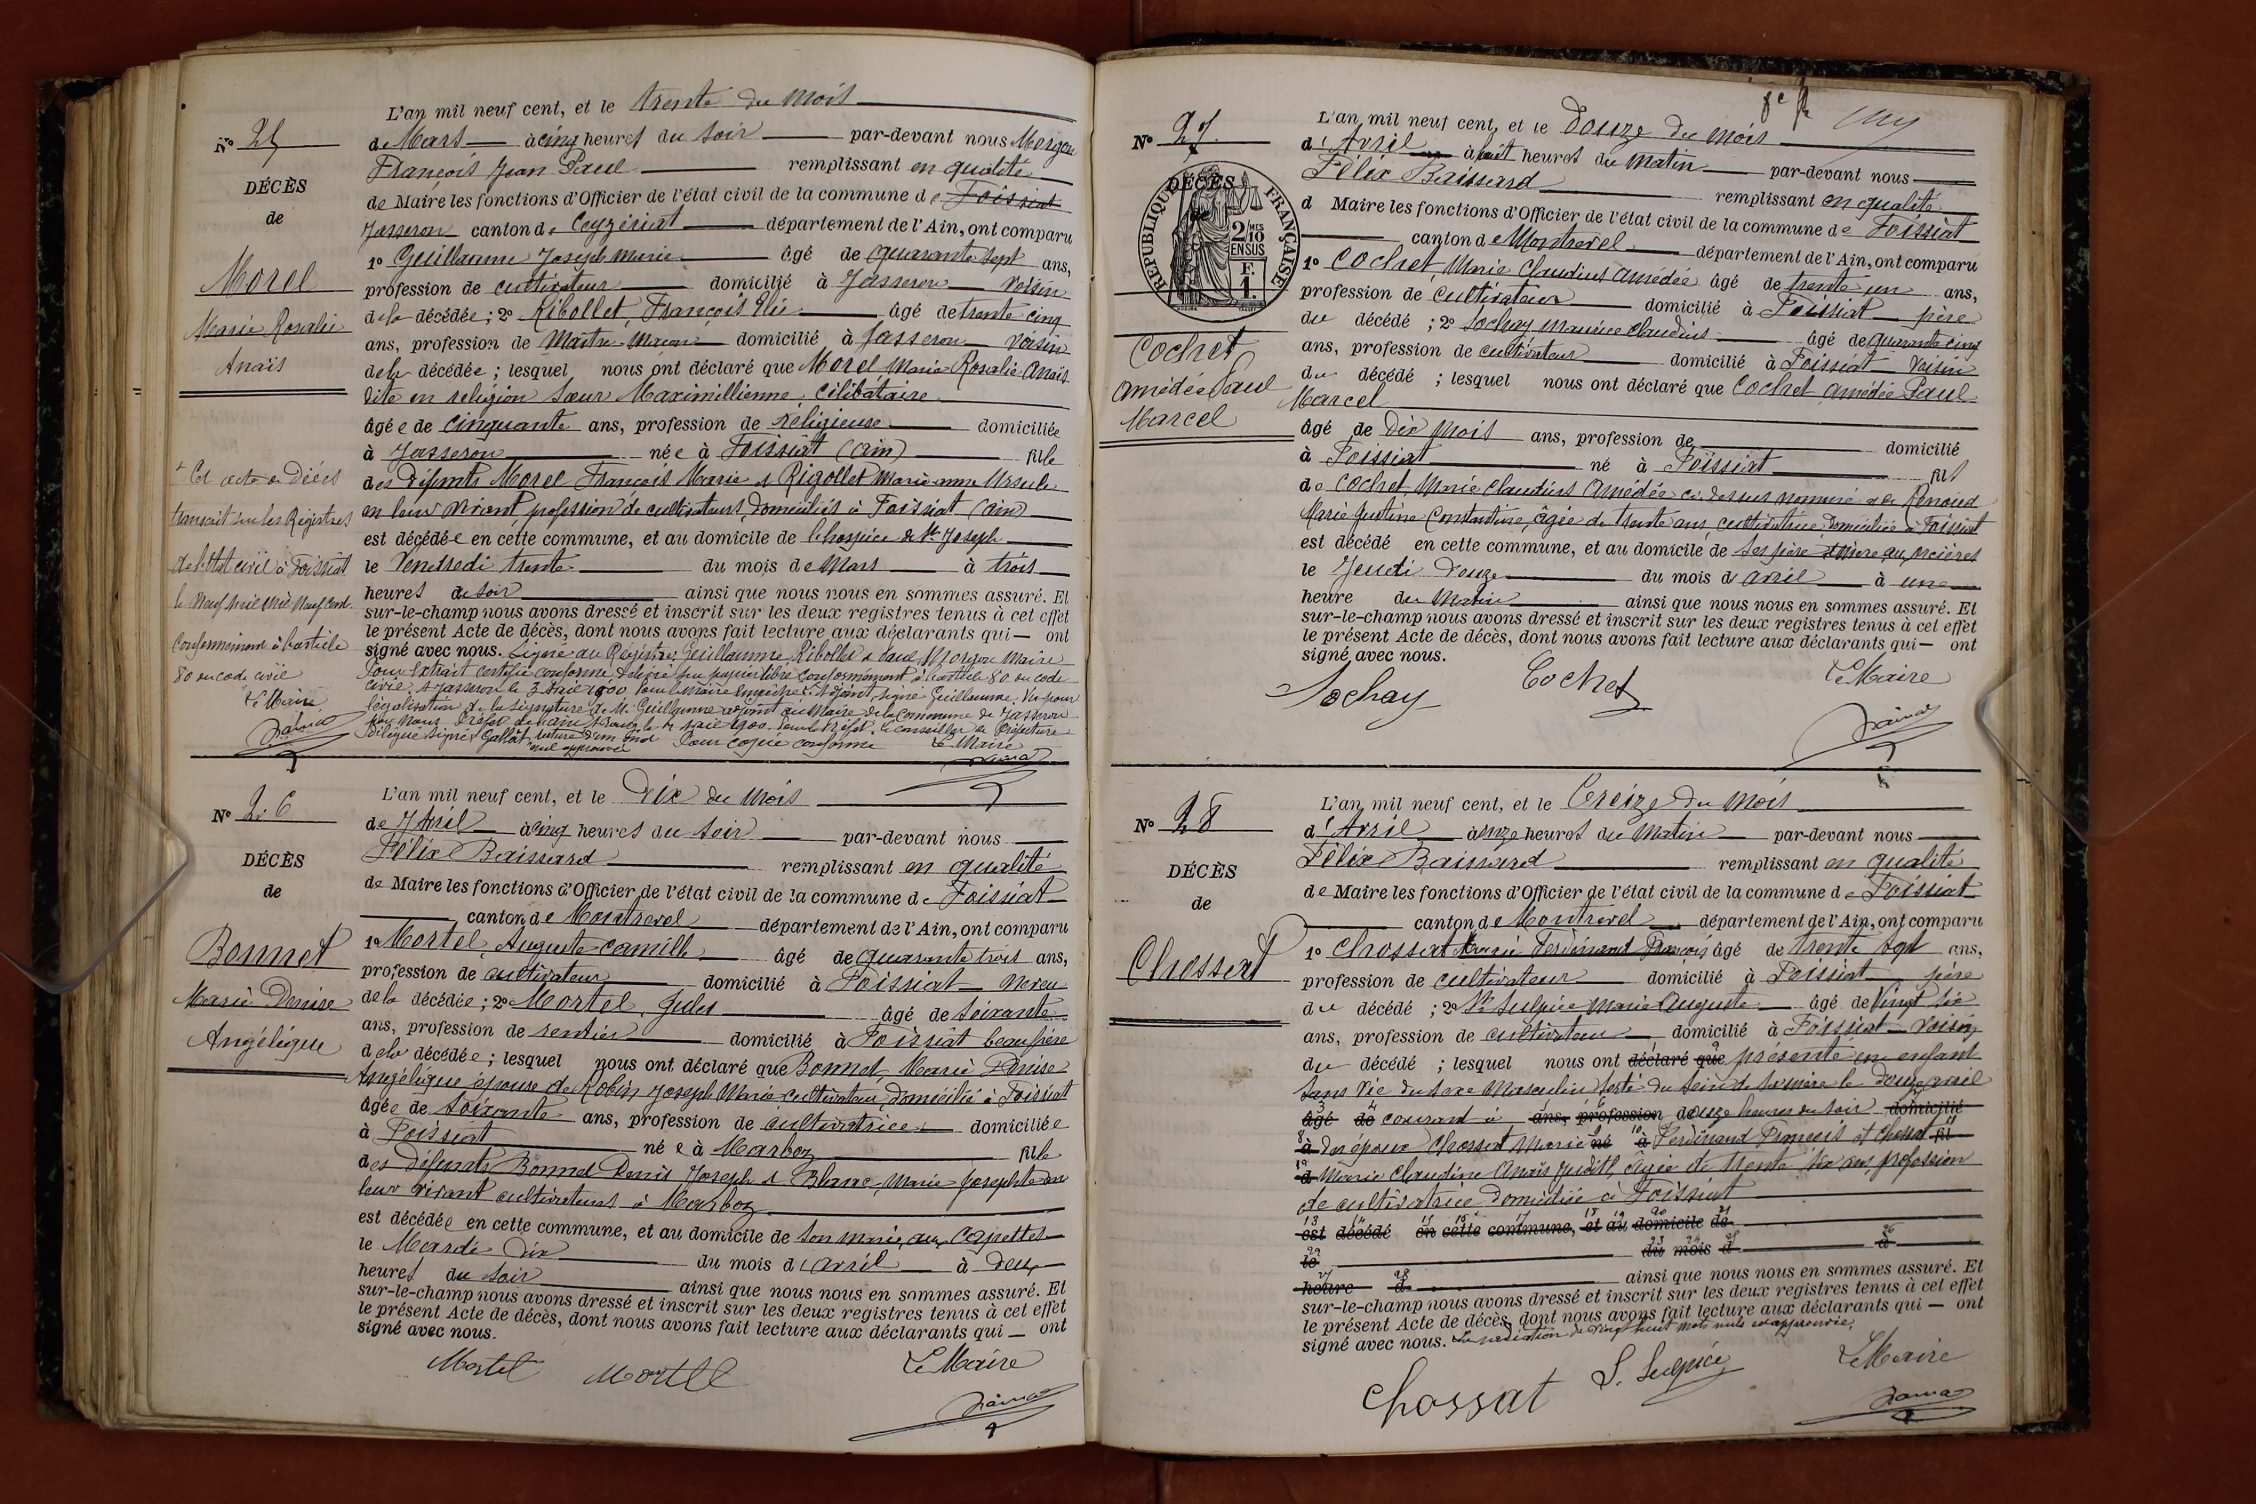 L'an mil neuf cent, et le trente du mois
N° 25
de Mars à cinq heures du soir par-devant nous Morgon
François Jean Paul remplissant en qualité
DÉCÈS
de Maire les fonctions d'Officier de l'état civil de la commune de Foissiat
de
Jasseron canton de Ceyzériat département de l'Ain, ont comparu
1° Guillaume Joseph Marie âgé de quarante sept ans,
Morel
profession de cultivateur domicilié à Jasseron voisin
Marie Rosalie
de la décédée ; 2° Ribollet, François Elie âgé de trente cinq
ans, profession de Maître-Maçon domicilié à Jasseron voisin
Anaïs
de la décédée ; lesquel nous ont déclaré que Morel Marie Rosalie Anaïs
dite en religion Sœur Maximillienne, célibataire
âgée de cinquante ans, profession de religieuse domiciliée
à Jasseron née à Foissiat (Ain) fille
des défunts Morel François Marie et Rigollet Marie anne Ursule
en leur vivant profession de cultivateurs, domiciliés à Foissiat (Ain)
est décédée en cette commune, et au domicile de l'hospice de St Joseph
le Vendredi trente du mois de Mars à trois
heures du soir ainsi que nous nous en sommes assuré. Et
sur-le-champ nous avons dressé et inscrit sur les deux registres tenus à cet effet
le présent Acte de décès, dont nous avons fait lecture aux déclarants qui ont
signé avec nous. Signé au Registre: Guillaume, Ribollet & Paul Morgon Maire
Pour extrait certifié conforme, délivré sur papier libre conformément à l'article 80 du code
civil. A Jasseron le 3 Mai 1900. Pour le Maire empêché: l'Adjoint, signé Guillaume. Vu pour
légalisation de la signature de M. Guillaume adjoint au Maire de la Commune de Jasseron
par nous Préfet de l'Ain. Bourg le 4 Mai 1900. Pour le Préfet: le Conseiller de Préfecture
délégué signé Gallat, rature d'un mot Pour copie conforme Le Maire
nul approuvé
+ Cet acte de Décès
transcrit sur les Registres
de l'état civil à Foissiat
le neuf Mai mil neuf cent
conformément à l'article
80 du code civil
Le Maire
L'an mil neuf cent, et le Dix du mois
N° 26
de d'Avril à cinq heures du soir par-devant nous
Félix Baissard remplissant en qualité
DÉCÈS
de Maire les fonctions d'Officier de l'état civil de la commune de Foissiat
de
canton de Montrevel département de l'Ain, ont comparu
Bonnet
1° Mortel, Auguste Camille âgé de quarante trois ans,
profession de cultivateur domicilié à Foissiat Neveu
Marie Denise
de la décédée ; 2° Mortel, Jules âgé de soixante
ans, profession de rentier domicilié à Foissiat beau frère
Angélique
de la décédée ; lesquel nous ont déclaré que Bonnet Marie Denise
Angélique épouse de Robin Joseph Marie cultivateur, domicilié à Foissiat
âgée de soixante ans, profession de cultivatrice domiciliée
à Foissiat née à Marboz fille
des défunts Bonnet Denis Joseph & Blanc, Marie Josephte en
leur vivant cultivateurs à Marboz
est décédée en cette commune, et au domicile de son mari, aux Capettes
le Mardi Dix du mois d'avril à deux
heures du soir ainsi que nous nous en sommes assuré. Et
sur-le-champ nous avons dressé et inscrit sur les deux registres tenus à cet effet
le présent Acte de décès, dont nous avons fait lecture aux déclarants qui ont
signé avec nous.
Mortel Mortel Le Maire
L'an mil neuf cent, et le Douze du mois
N° 27
d'Avril à huit heures du matin par-devant nous
Félix Baissard remplissant en qualité
DÉCÈS
RÉPUBLIQUE FRANÇAISE
2/10 EN SUS
F. 1.
d Maire les fonctions d'Officier de l'état civil de la commune de Foissiat
canton de Montrevel département de l'Ain, ont comparu
1° Cochet, Marie Claudius Amédée âgé de trente un ans,
profession de cultivateur domicilié à Foissiat père
du décédé ; 2° Sochay Maurice Claudius âgé de quarante cinq
Cochet
ans, profession de cultivateur domicilié à Foissiat voisin
Amédée Paul
du décédé ; lesquel nous ont déclaré que Cochet Amédée Paul
Marcel
Marcel
âgé de Dix Mois ans, profession de domicilié
à Foissiat né à Foissiat fils
de Cochet, Marie Claudius Amédée ci-dessus nommé et de Renoud
Marie Justine Constantine, âgée de trente ans, cultivatrice, domiciliée à Foissiat
est décédé en cette commune, et au domicile de ses père & mère
le Jeudi Douze du mois d'avril à une
heure du Matin ainsi que nous nous en sommes assuré. Et
sur-le-champ nous avons dressé et inscrit sur les deux registres tenus à cet effet
le présent Acte de décès, dont nous avons fait lecture aux déclarants qui ont
signé avec nous.
Sochay Cochet Le Maire
L'an mil neuf cent, et le Treize du mois
N° 28
d'Avril à onze heures du Matin par-devant nous
Félix Baissard remplissant en qualité
DÉCÈS
de Maire les fonctions d'Officier de l'état civil de la commune de Foissiat
de
canton de Montrevel département de l'Ain, ont comparu
Chossat
1° Chossat Marie Ferdinand François âgé de trente sept ans,
profession de cultivateur domicilié à Foissiat père
du décédé ; 2° St Sulpice Marie Auguste âgé de Vingt six
ans, profession de cultivateur domicilié à Foissiat voisin
du décédé ; lesquel nous ont déclaré que présenté un enfant
sans vie du sexe Masculin sorti du sein de sa mère le douze avril
âgé de courant à ans, profession douze heures du soir domicilié
à des époux Chossat, Marie né à Ferdinand François et Chossat fil
d Marie Claudine Anaïs Judith, âgée de trente six ans, profession
de cultivatrice domiciliée à Foissiat
est décédé en cette commune, et au domicile de
le du mois d à
heure d ainsi que nous nous en sommes assuré. Et
sur-le-champ nous avons dressé et inscrit sur les deux registres tenus à cet effet
le présent Acte de décès, dont nous avons fait lecture aux déclarants qui ont
signé avec nous. La radiation de vingt huit mots nuls est approuvée.
Chossat S. Sulpice Le Maire